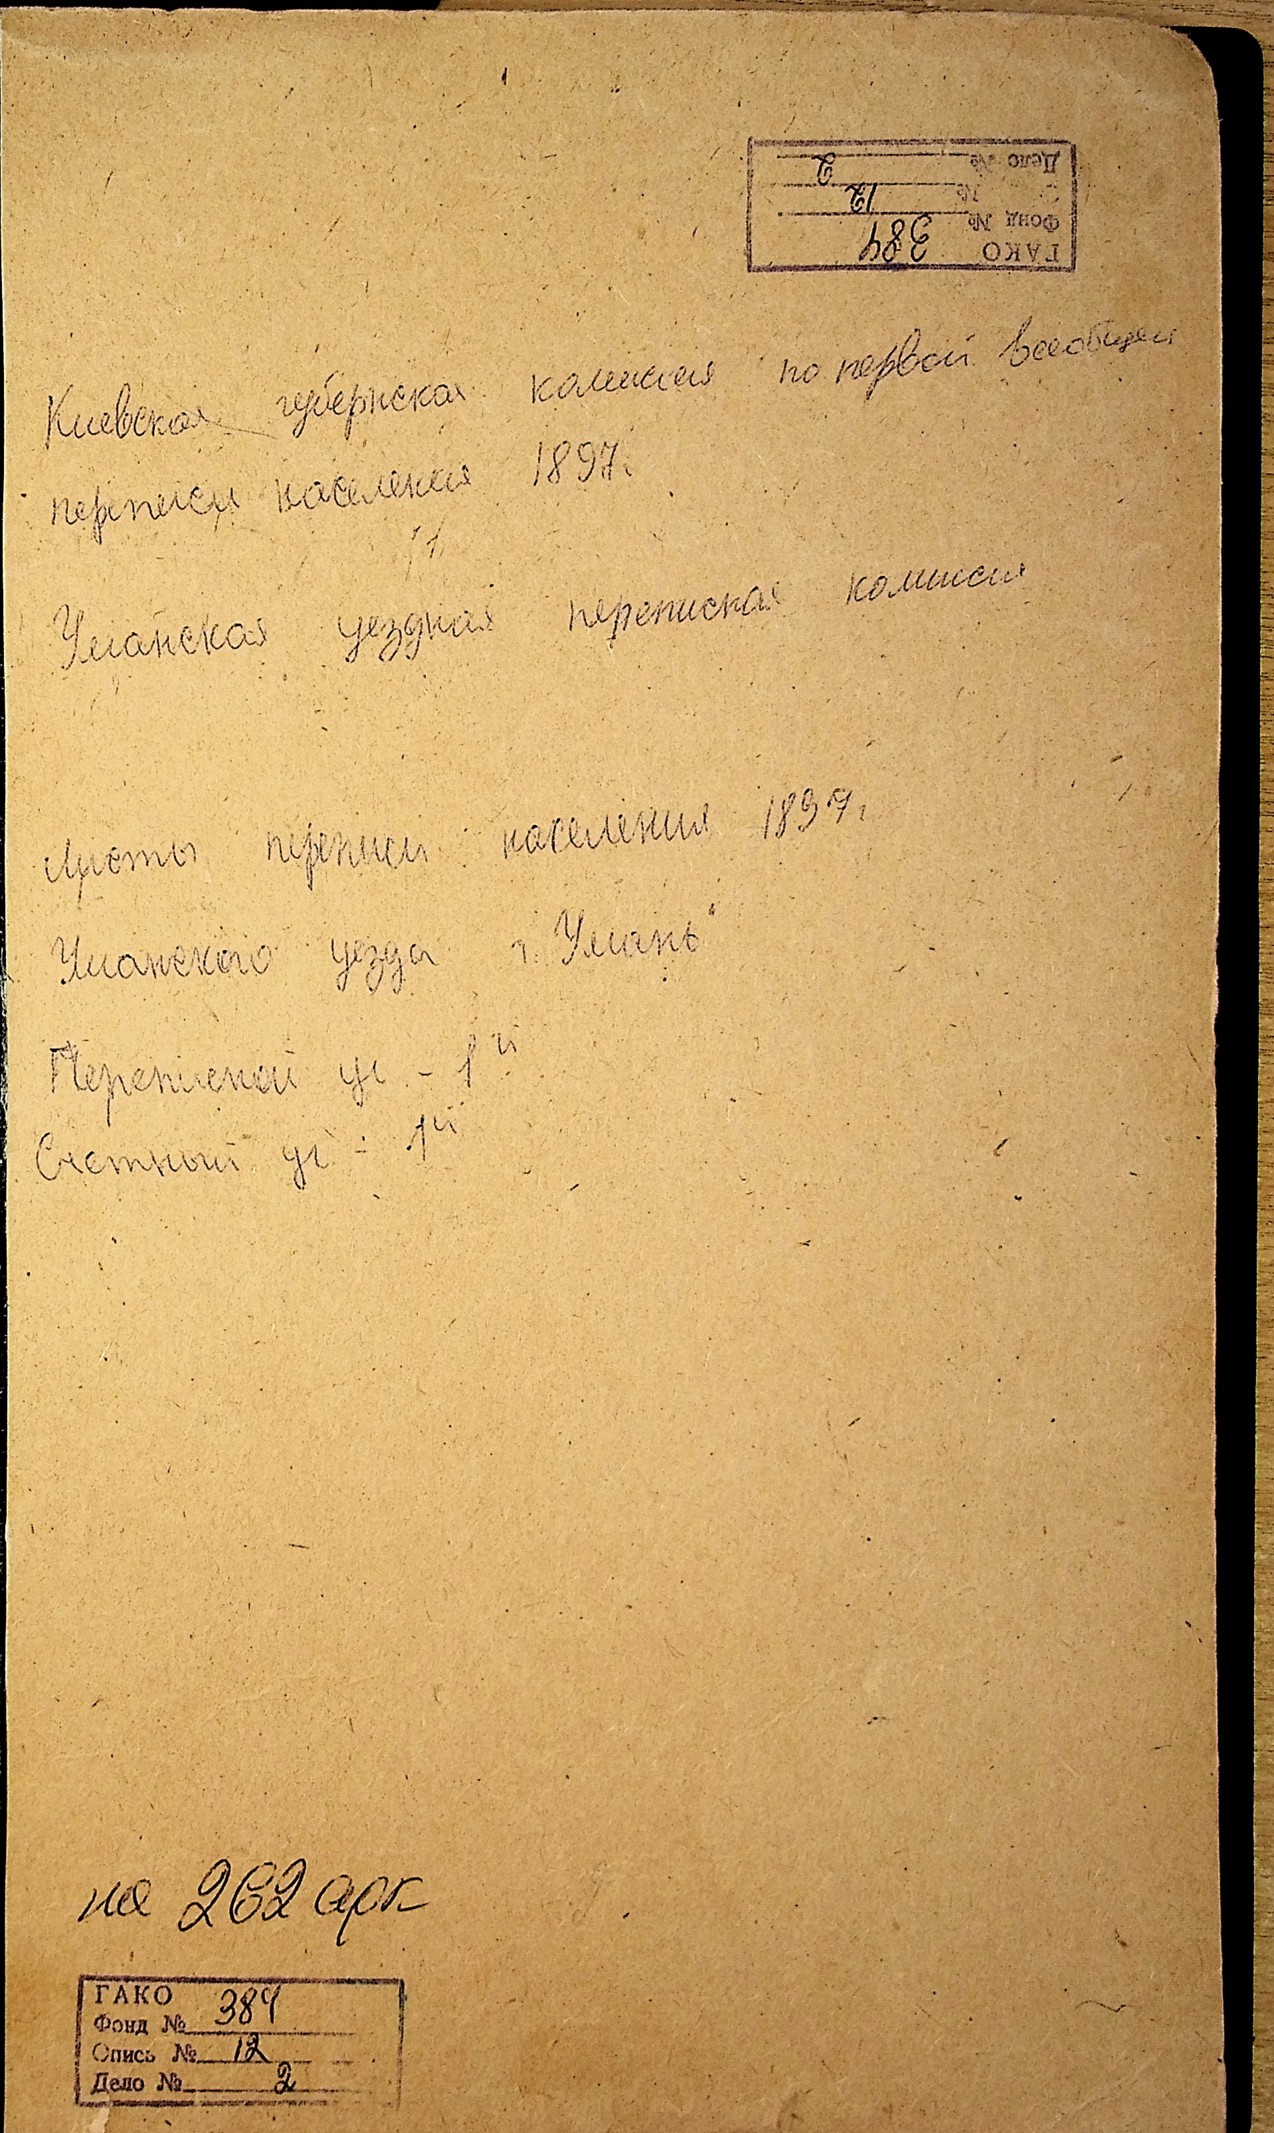 ГАКО
Фонд № 384
№ 12
Дело № 2
Киевская губернская комиссия по первой всеобщей
переписи населения 1897г.
Уманская уездная переписная комиссия
Листы переписи населения 1897г.
Уманского уезда г. Умань"
Переписной уч - 1й
Счетный уч - 1й
на 262 арк
ГАКО
Фонд № 384
Опись № 12
Дело № 2